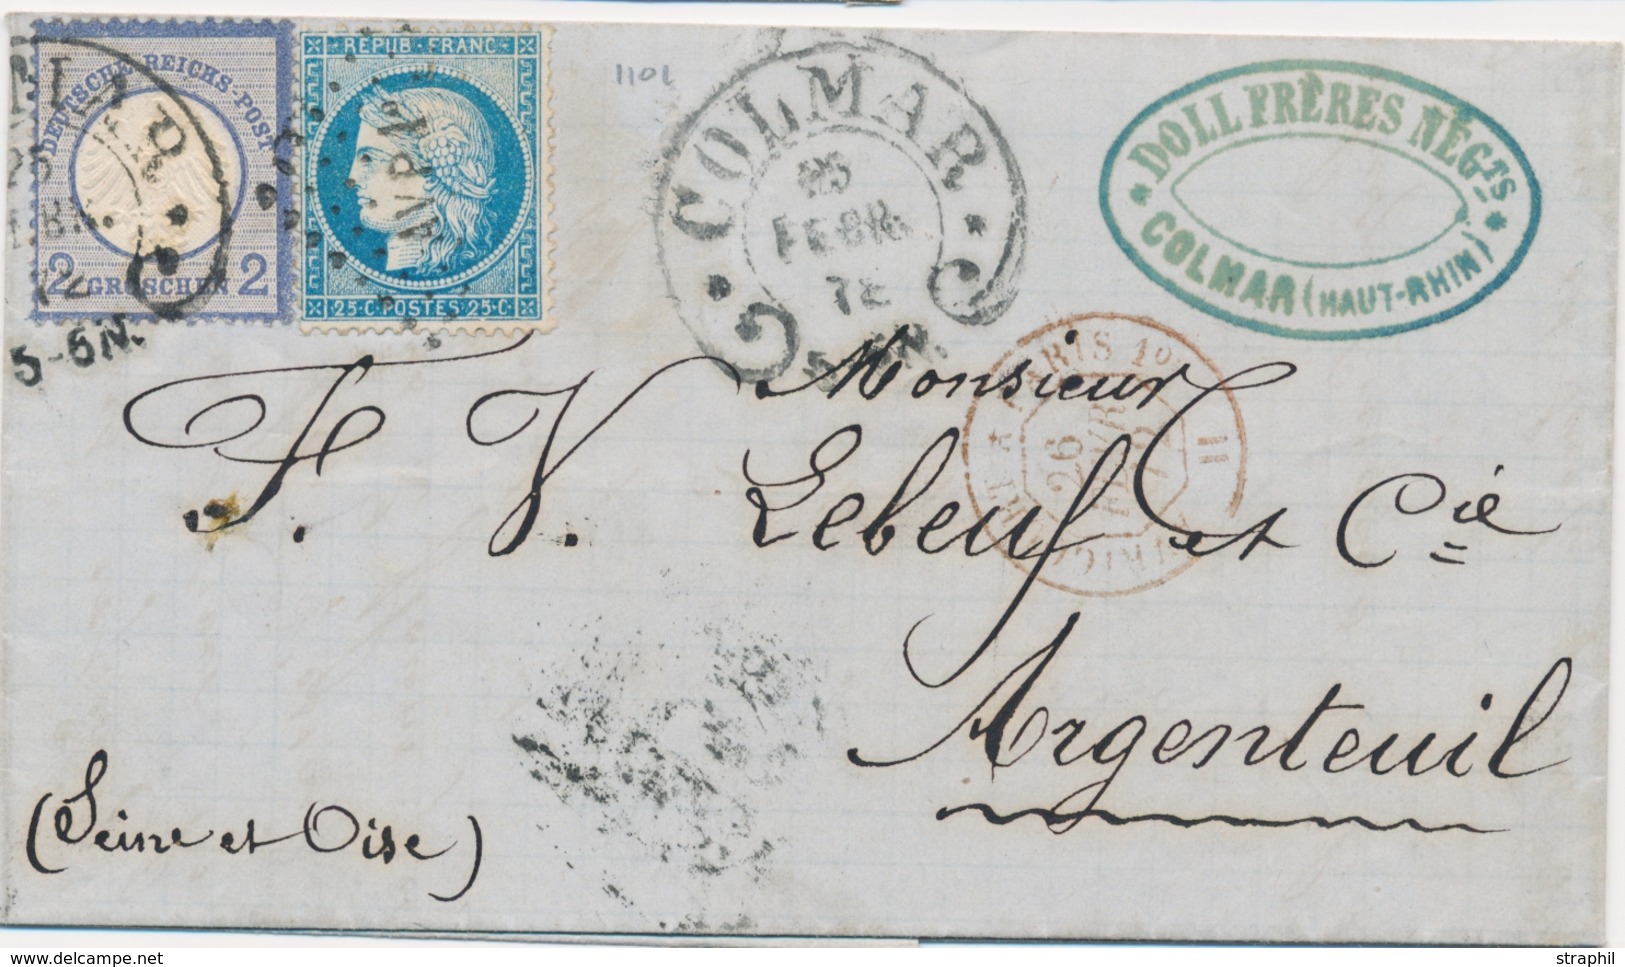 DEUTSCHE REICHS-POST
2 GROSCHEN 2
5-6N.
REPUB. FRANC.
25·C·POSTES·25·C·
1101
COLMAR
25
FEBR.
72
DOLL FRÈRES NÉGTS
COLMAR (HAUT-RHIN)
PARIS 1º
26
72
Monsieur
F. V. Lebeuf et Cie
Argenteuil
(Seine et Oise)
www.delcampe.net
straphil